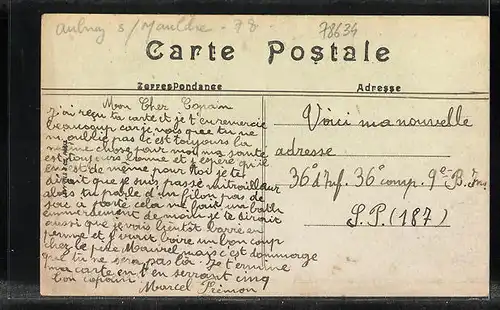 Aulnay s/Mauldre - 78 -
78634
Carte Postale
Correspondance
Adresse
Mon Cher Copain
J'ai reçu ta carte et je t'en remercie
beaucoup car je vois que tu ne
m'oublie pas c'est toujours la
même chose pour moi ma santé
est toujours bonne et j'espère qu'il
en est de même pour toi je te
dirait que je suis passé mitrailleur
alors tu parle d'un filon pas de
sac à porter cela me fait un
de moin je te dirait
aussi que je vais bientôt barré en
perme et j'irait boire un bon coup
chez le père Maurel mais c'est dommage
que tu ne sera pas là. Je termine
ma carte en t'en serrant cinq
ton copain
Marcel
Voici ma nouvelle
adresse
36e d'Inf. 36e comp. 9e B.
S.P. (187)